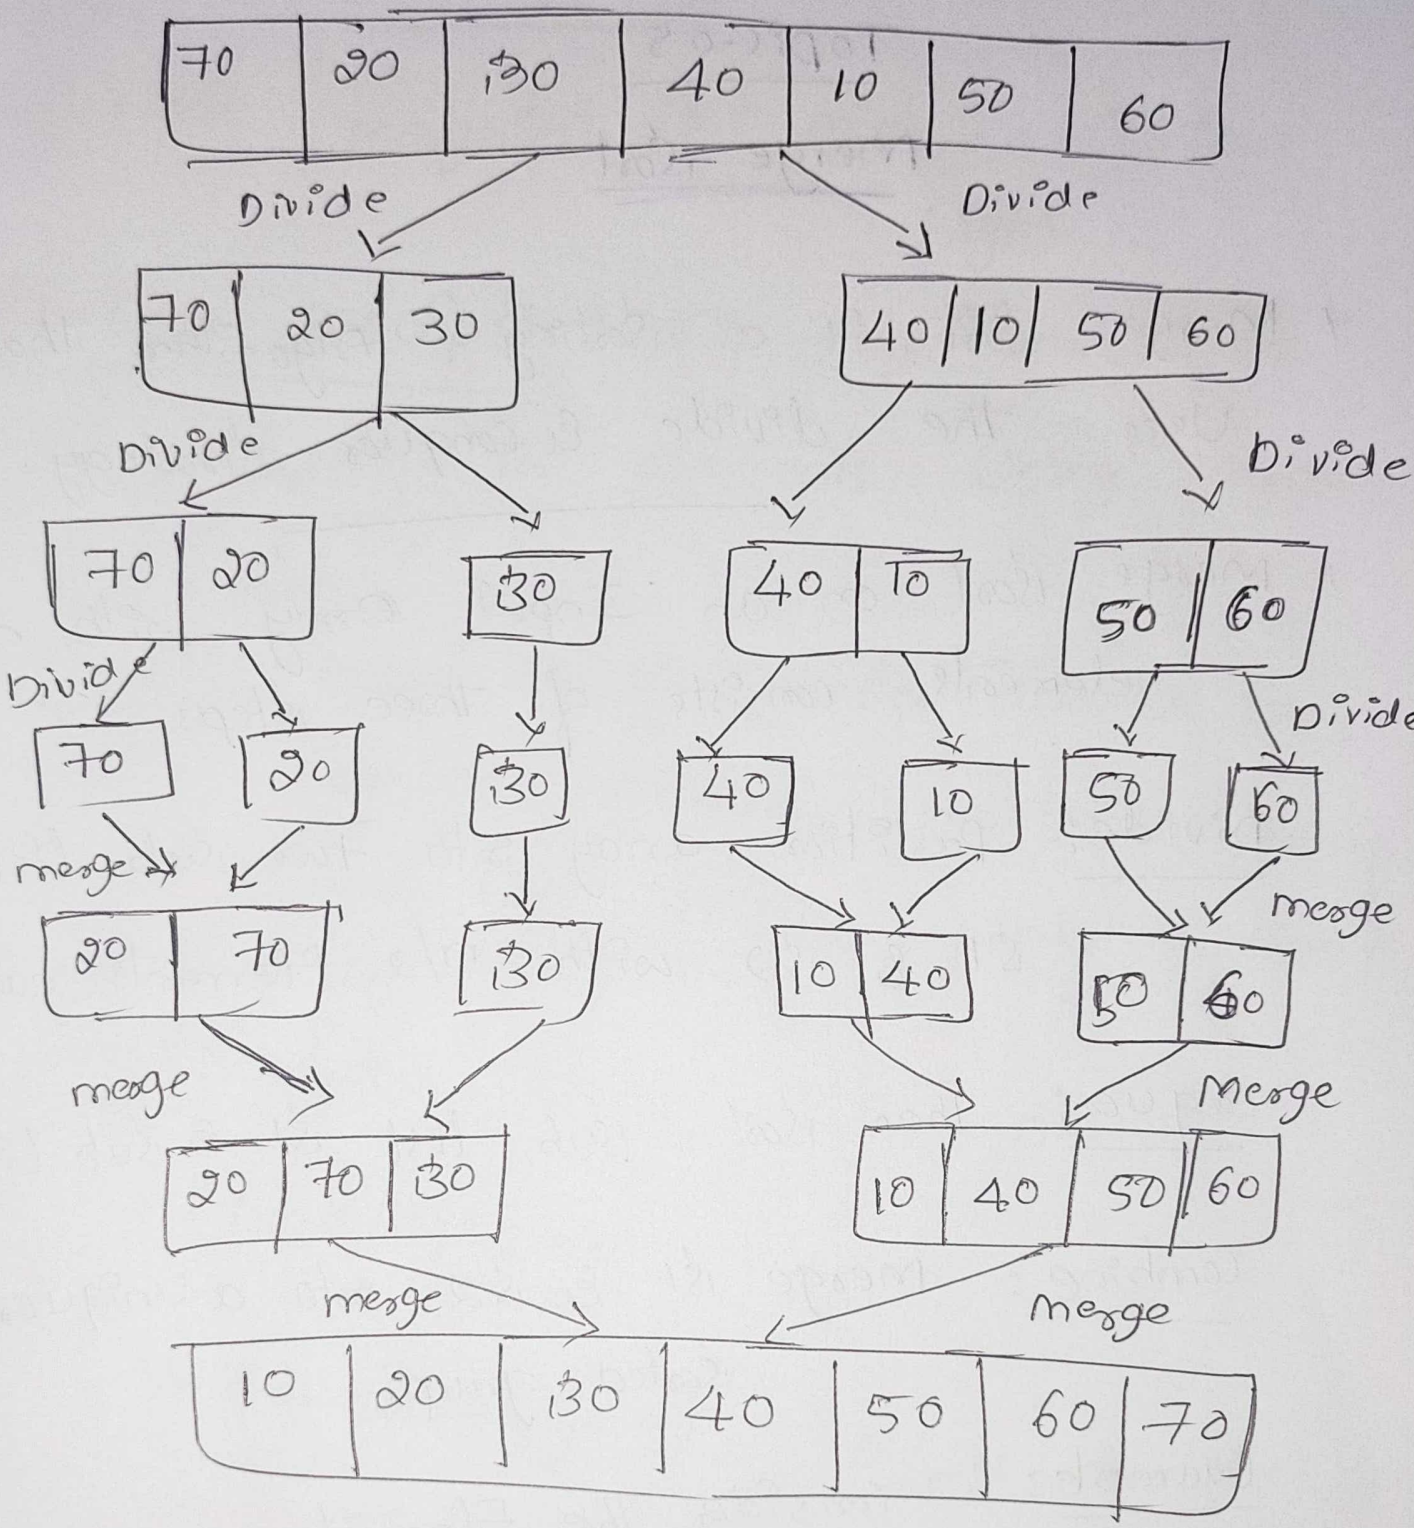 70 20 30 40 10 50 60
Divide Divide
70 20 30 40 10 50 60
Divide Divide
70 20 30 40 10 50 60
Divide Divide
70 20 30 40 10 50 60
merge merge
20 70 30 10 40 50 60
merge Merge
20 70 30 10 40 50 60
merge merge
10 20 30 40 50 60 70